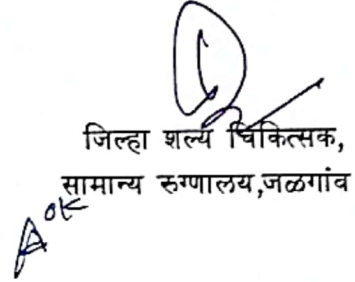 जिल्हा शल्य चिकित्सक,
सामान्य रुग्णालय,जळगांव